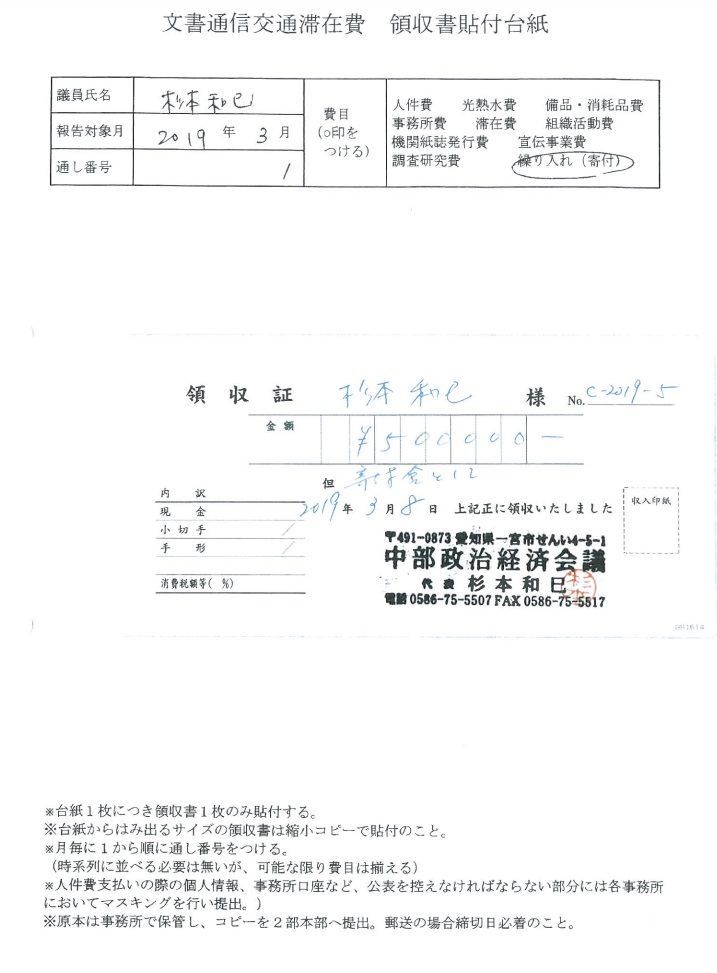 文書通信交通滞在費　領収書貼付台紙
議員氏名　杉本和巳
報告対象月　2019 年 3 月
通し番号　1
費目
(○印を
つける)
人件費　光熱水費　備品・消耗品費
事務所費　滞在費　組織活動費
機関紙誌発行費　宣伝事業費
調査研究費　繰り入れ（寄付）
領収証　杉本和巳　様　No. C-2019-5
金額　¥500000−
但　寄付金として
2019年 3月 8日　上記正に領収いたしました
内訳
現金
小切手
手形
消費税額等(　%)
収入印紙
〒491-0873 愛知県一宮市せんい4-5-1
中部政治経済会議
代表 杉本和巳
電話 0586-75-5507 FAX 0586-75-5517
※台紙１枚につき領収書１枚のみ貼付する。
※台紙からはみ出るサイズの領収書は縮小コピーで貼付のこと。
※月毎に１から順に通し番号をつける。
（時系列に並べる必要は無いが、可能な限り費目は揃える）
※人件費支払いの際の個人情報、事務所口座など、公表を控えなければならない部分には各事務所
においてマスキングを行い提出。）
※原本は事務所で保管し、コピーを２部本部へ提出。郵送の場合締切日必着のこと。